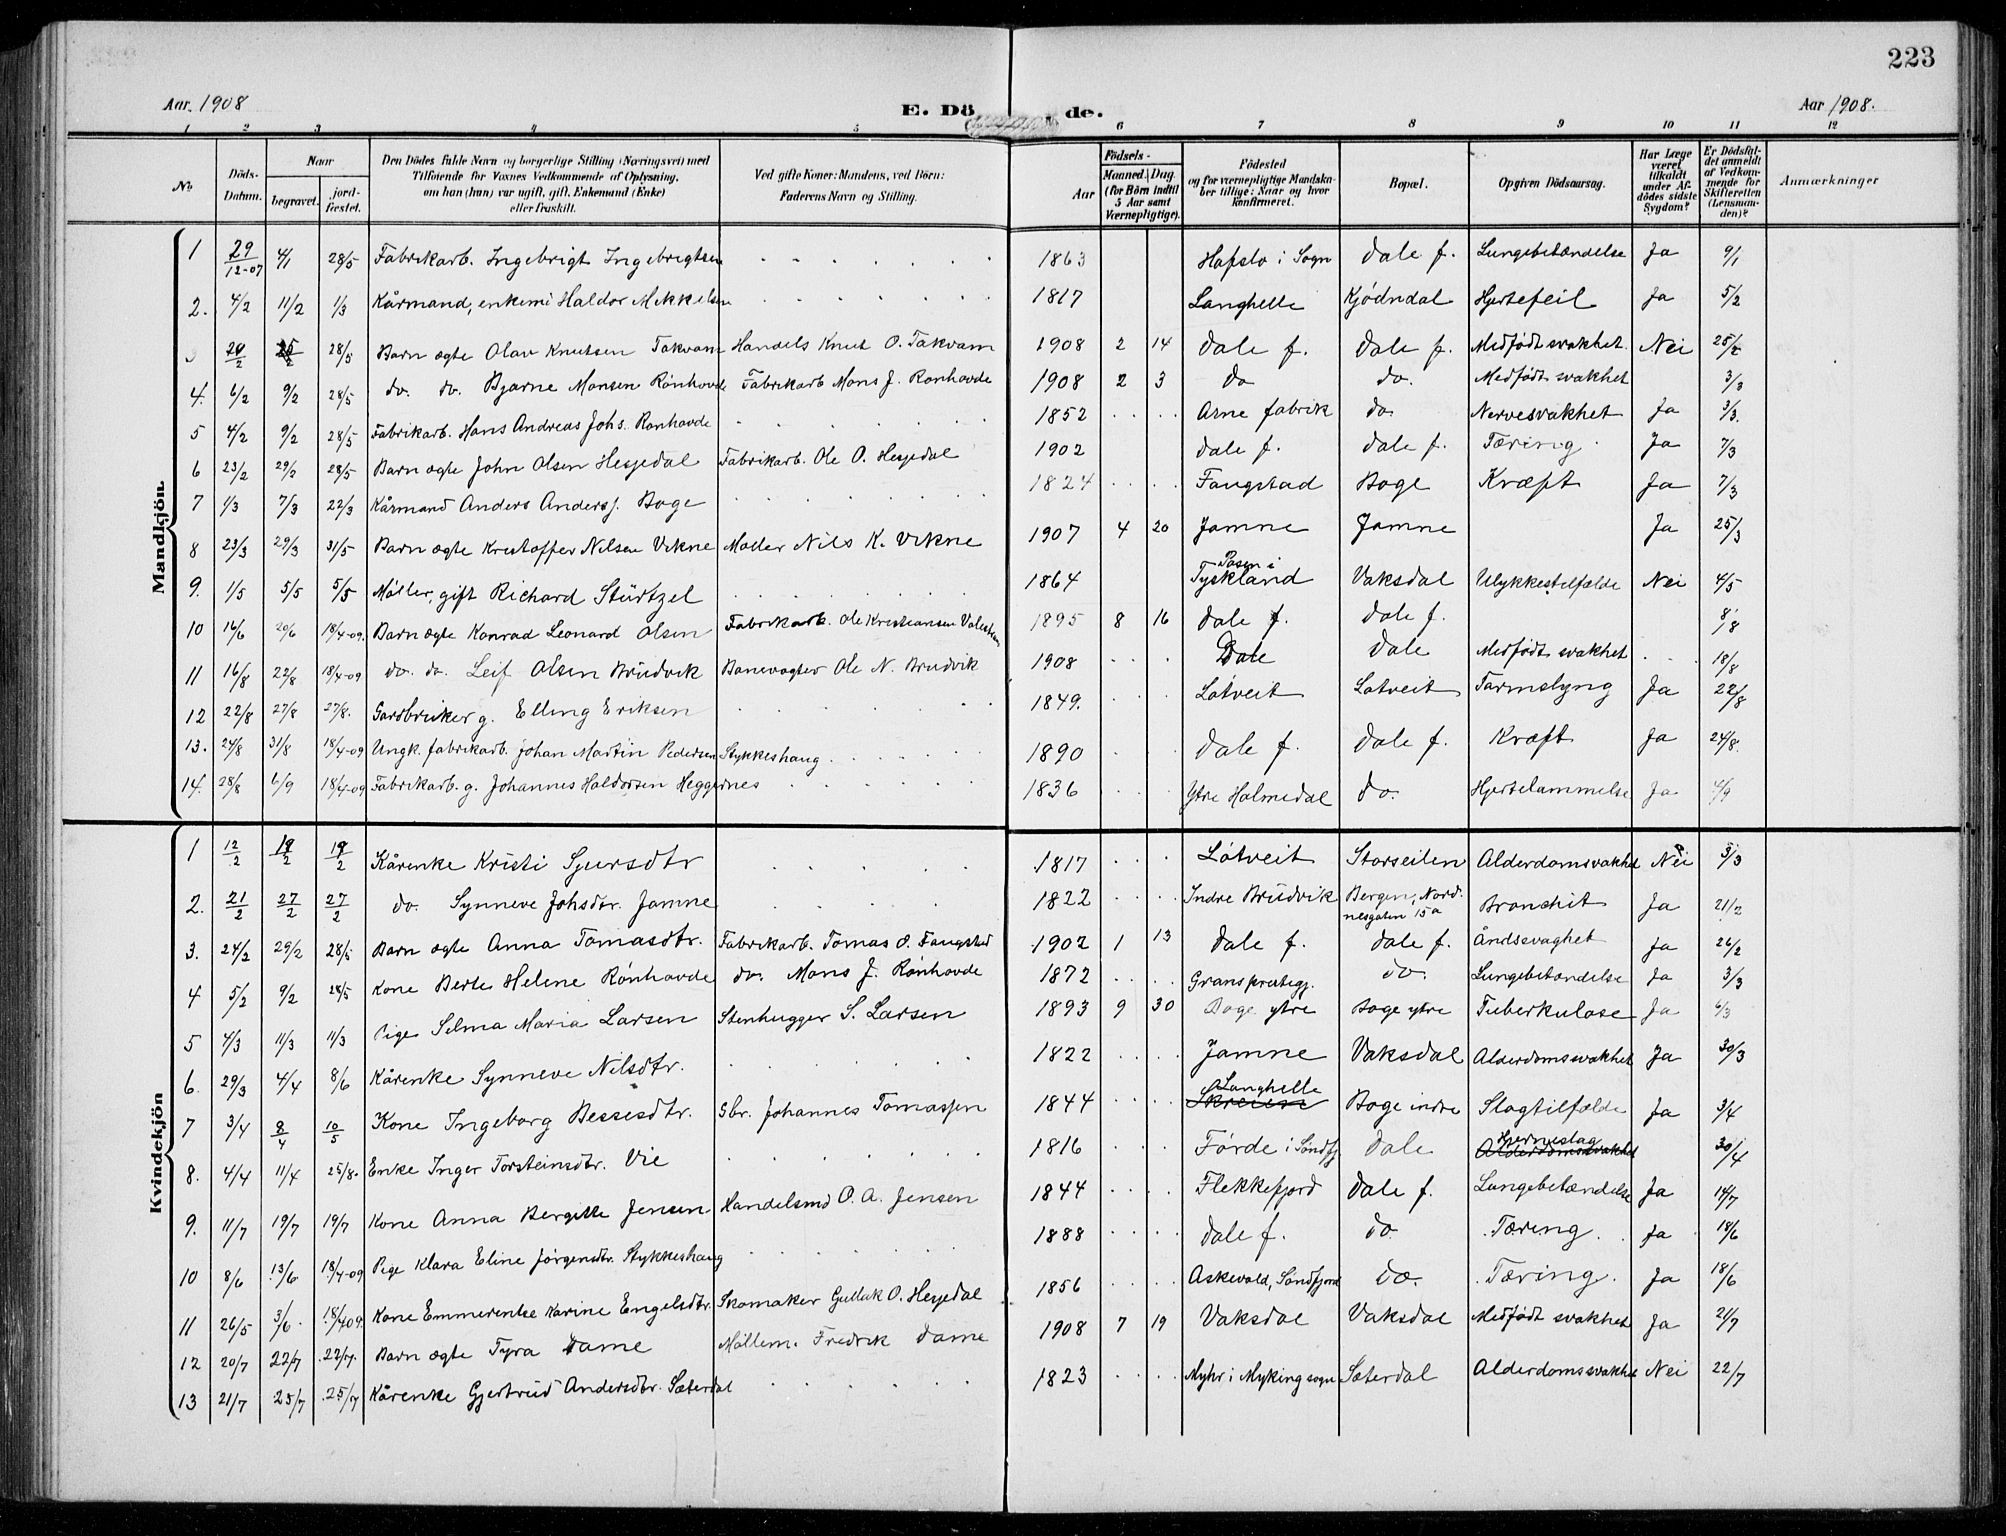 223
Aar 1908
E. Dö
de.
Aar 1908.
1 2 3 4 5 6 7 8 9 10 11 12
No
Döds-Datum.
Naar
begravet.
jord-fæstet.
Den Dödes fulde Navn og borgerlige Stilling (Næringsvei) med Tilföiende for Voxnes Vedkommende af Oplysning, om han (hun) var ugift, gift, Enkemand (Enke) eller fraskilt.
Ved gifte Koner: Mandens, ved Börn: Faderens Navn og Stilling.
Födsels-
Aar
Maaned. Dag.
(for Börn indtil 5 Aar samt Værnepligtige).
Födested og for værnepligtige Mandskaber tillige: Naar og hvor konfirmeret.
Bopæl.
Opgiven Dödsaarsag.
Har Læge været tilkaldt under Afdödes sidste Sygdom?
Er Dödsfaldet anmeldt af Vedkommende for Skifteretten (Lensmanden)?
Anmærkninger
Mandkjön.
1 29/12-07 4/1 28/5 Fabrikarb. Ingebrigt Ingebrigtsen 1863 Hafslo i Sogn Dale f. Lungebetændelse Ja 9/1
2. 4/2 11/2 1/3 Kårmand, enkem. Haldor Mikkelsen 1817 Langhelle Kjødndal Hjertefeil Ja 5/2
28/5 Barn ægte Olav Knutsen Takvam Handels Knut O. Takvam 1908 2 14 Dale f. Dale f. Medfødt svakhet. Nei 25/2
4. 6/2 9/2 28/5 do. do. Bjarne Monsen Rønhovde Fabrikarb Mons J. Rønhovde 1908 2 3 do do. Medfødt svakhet 3/3
5 4/2 9/2 28/5 Fabrikarb. Hans Andreas Johs. Rønhovde 1852 Arne fabrik do. Nervesvakhet Ja 3/3.
6 23/2 29/2 28/5 Barn ægte John Olsen Hesjedal Fabrikarb. Ole O. Hesjedal 1902 Dale f. Dale f. Tæring Ja 7/3
7 1/3 7/3 22/3 Kårmand Anders Anderss. Boge 1824 Fangstad Boge Kræft Ja 7/3
8 23/3 29/3 31/5 Barn ægte Kristoffer Nilsen Vikne Møller Nils K. Vikne 1907 4 20 Jamne Jamne Ja 25/3
9. 1/5 5/5 5/5 Møller, gift Richard Stürtzel 1864 Posen i Tyskland Vaksdal Ulykkestilfælde Nei 4/5
10 16/6 20/6 18/4-09. Barn ægte Konrad Leonard Olsen Fabrikarb. Ole Kristiansen 1895 8 16 Dale f. Dale f. 8/8
11 16/8 22/8 18/4-09 do. do. Leif Olsen Brüdvik Banevogter Ole N. Brudvik 1908 Dale Dale Medfødt svakhet 18/8
12 22/8 27/8 27/8. Gardbruker g. Elling Eriksen 1849. Låtveit Låtveit Tarmslyng Ja 22/8
13. 24/8 31/8 18/4-09 Ungk. fabrikarb. Johan Martin Pedersen Stykkeshaug 1890 Dale f. Dale f. Kræft Ja 24/8.
14. 28/8 6/9 18/4-09 Fabrikarb. g. Johannes Haldorsen Heggernes 1836 Ytre Holmedal do. Hjertelammelse Ja 4/9
Kvindekjön
1 12/2 19/2 19/2 Kårenke Kristi Sjursdtr 1817 Låtveit Storseilen Alderdomsvakhet Nei 3/3
2. 21/2 27/2 27/2 do. Synneve Johsdtr. Jamne 1822 Indre Brüdvik Bergen, Nordnesgaten 15a Bronchit Ja 21/2
3. 24/2 29/2 28/5 Barn ægte Anna Tomasdtr. Fabrikarb. Tomas O. Fangstad 1902 1 13 Dale f. Dale f. Åndssvaghet Ja 26/2
4 5/2 9/2 28/5 Kone Berte Helene Rønhovde do. Mons J. Rønhovde 1872 Grans prestegj. do. Lungebetændelse Ja 3/3
5 4/3 11/3 11/3 Pige Selma Maria Larsen Stenhugger S. Larsen 1893 9 30 Boge ytre Boge ytre Tuberkulose Ja 6/3
6. 29/3 4/4 8/6 Kårenke Synneve Nilsdtr. 1822 Jamne Vaksdal Alderdomssvakhet Ja 30/3
7 3/4 8/4 10/5 Kone Ingeborg Bessesdtr. Gbr. Johannes Tomassen 1844 Langhelle Skreien Boge indre Slagtilfælde Ja 3/4
8. 4/4 11/4 25/8. Enke Inger Torsteinsdtr. Vie 1816 Førde i Søndfj. Dale Hjerneslag Alderdomssvakhet 30/4
9. 11/7 19/7 19/7 Kone Anna Bergitte Jensen Handelsmd O. A. Jensen 1844 Flekkefjord Dale f. Lungebetændelse Ja 14/7
10 8/6 13/6 18/4-09 Pige Klara Eline Jørgensdtr. Stykkeshaug 1888 Dale f. do Tæring Ja 18/6
11 26/5 3/6 18/4 09. Kone Emmerentse Karine Engelsdtr. Skomaker Gullak O. Hesjedal 1856 Askevold, Søndfjord do. Tæring Ja 18/6
12 20/7 22/7 22/7. Barn ægte Tyra Dame Møllem. Fredrik Dame 1908 7 19 Vaksdal Vaksdal Medfødt svakhet Ja 21/7
13 21/7 25/7 25/7 Kårenke Gjertrud Andersdtr. Sæterdal 1823 Myhr i Myking sogn Sæterdal Alderdomssvakhet Nei 22/7